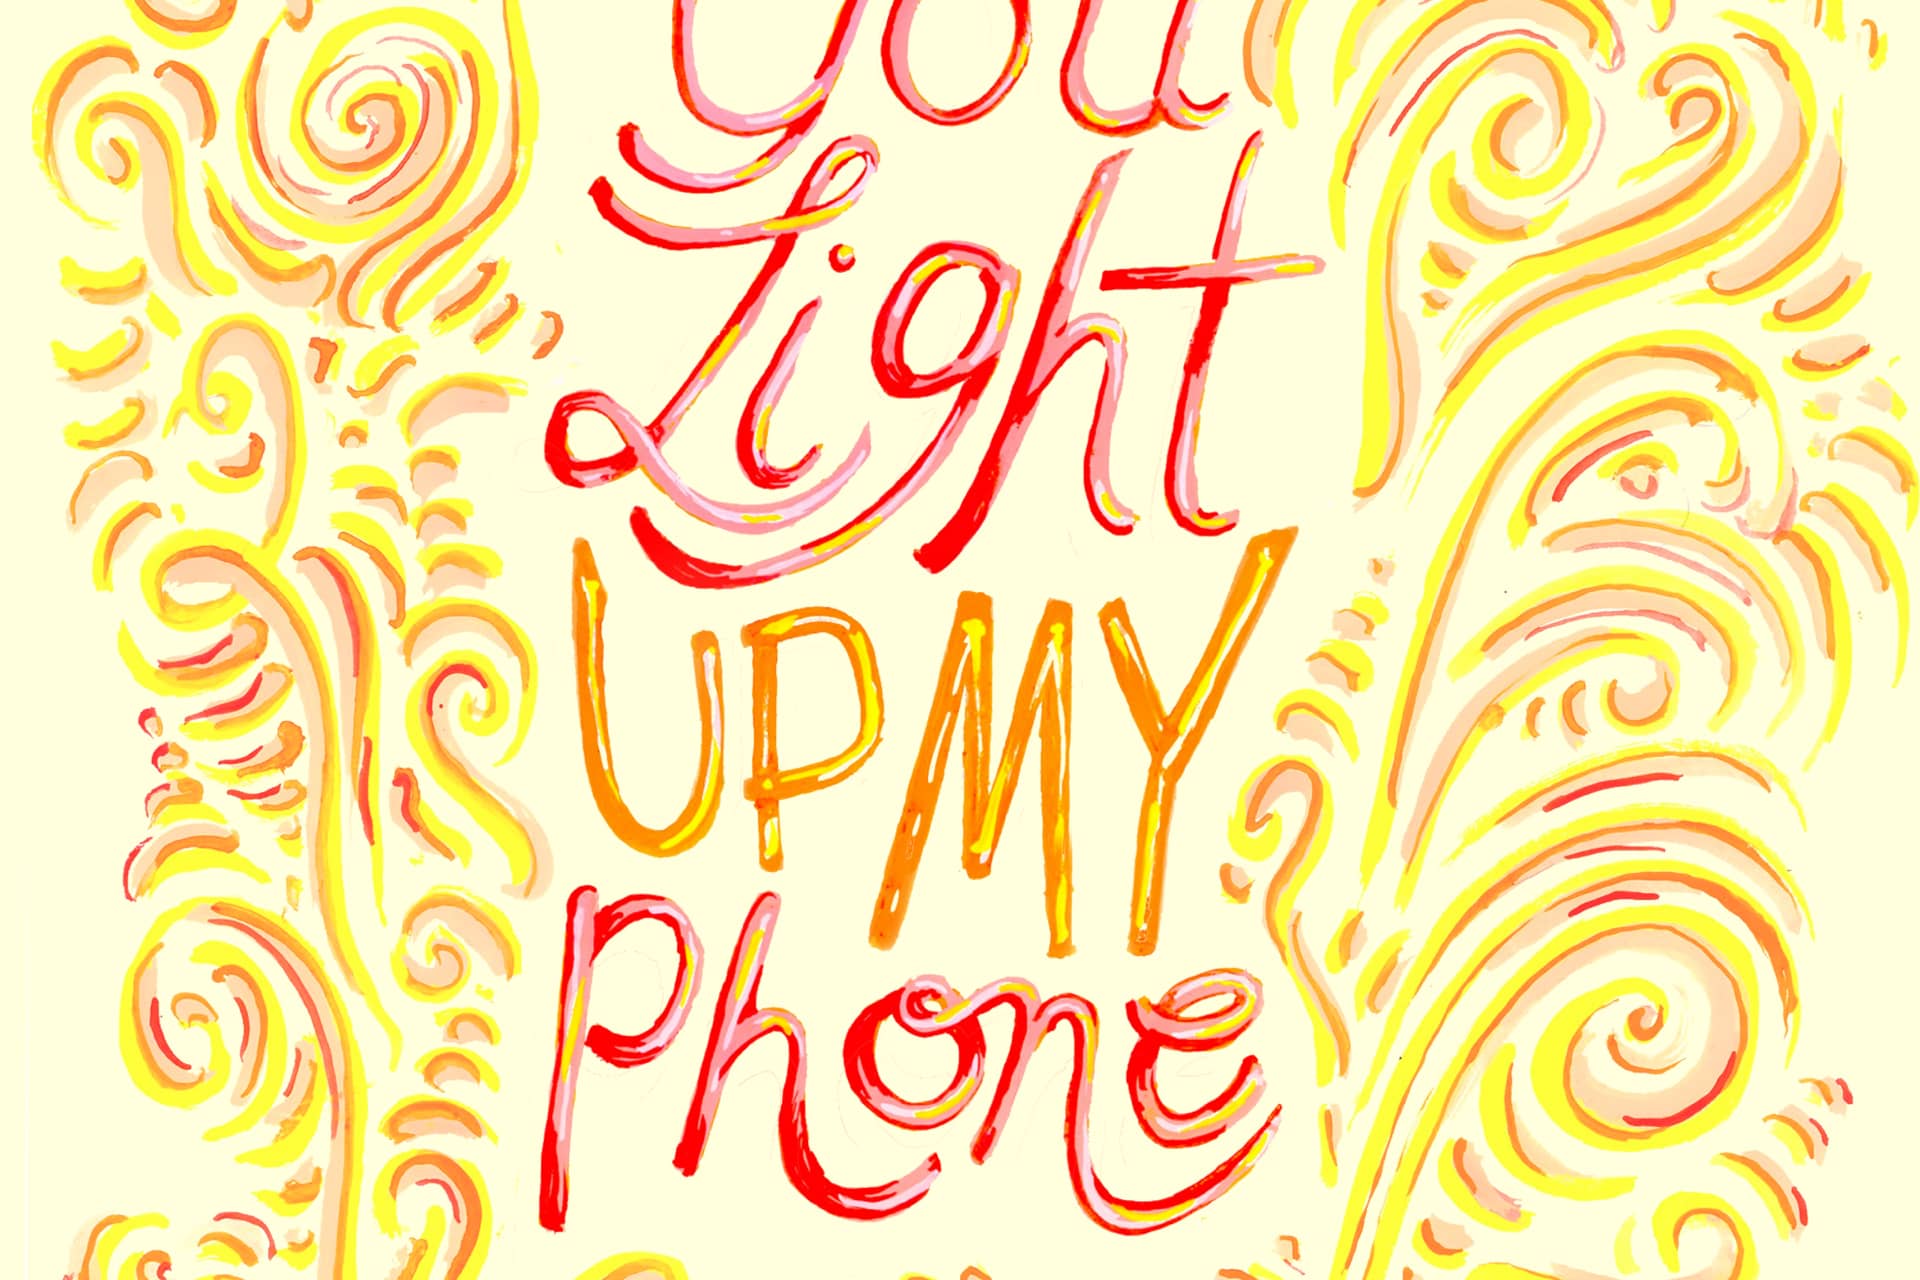 You
Light
UP MY
Phone